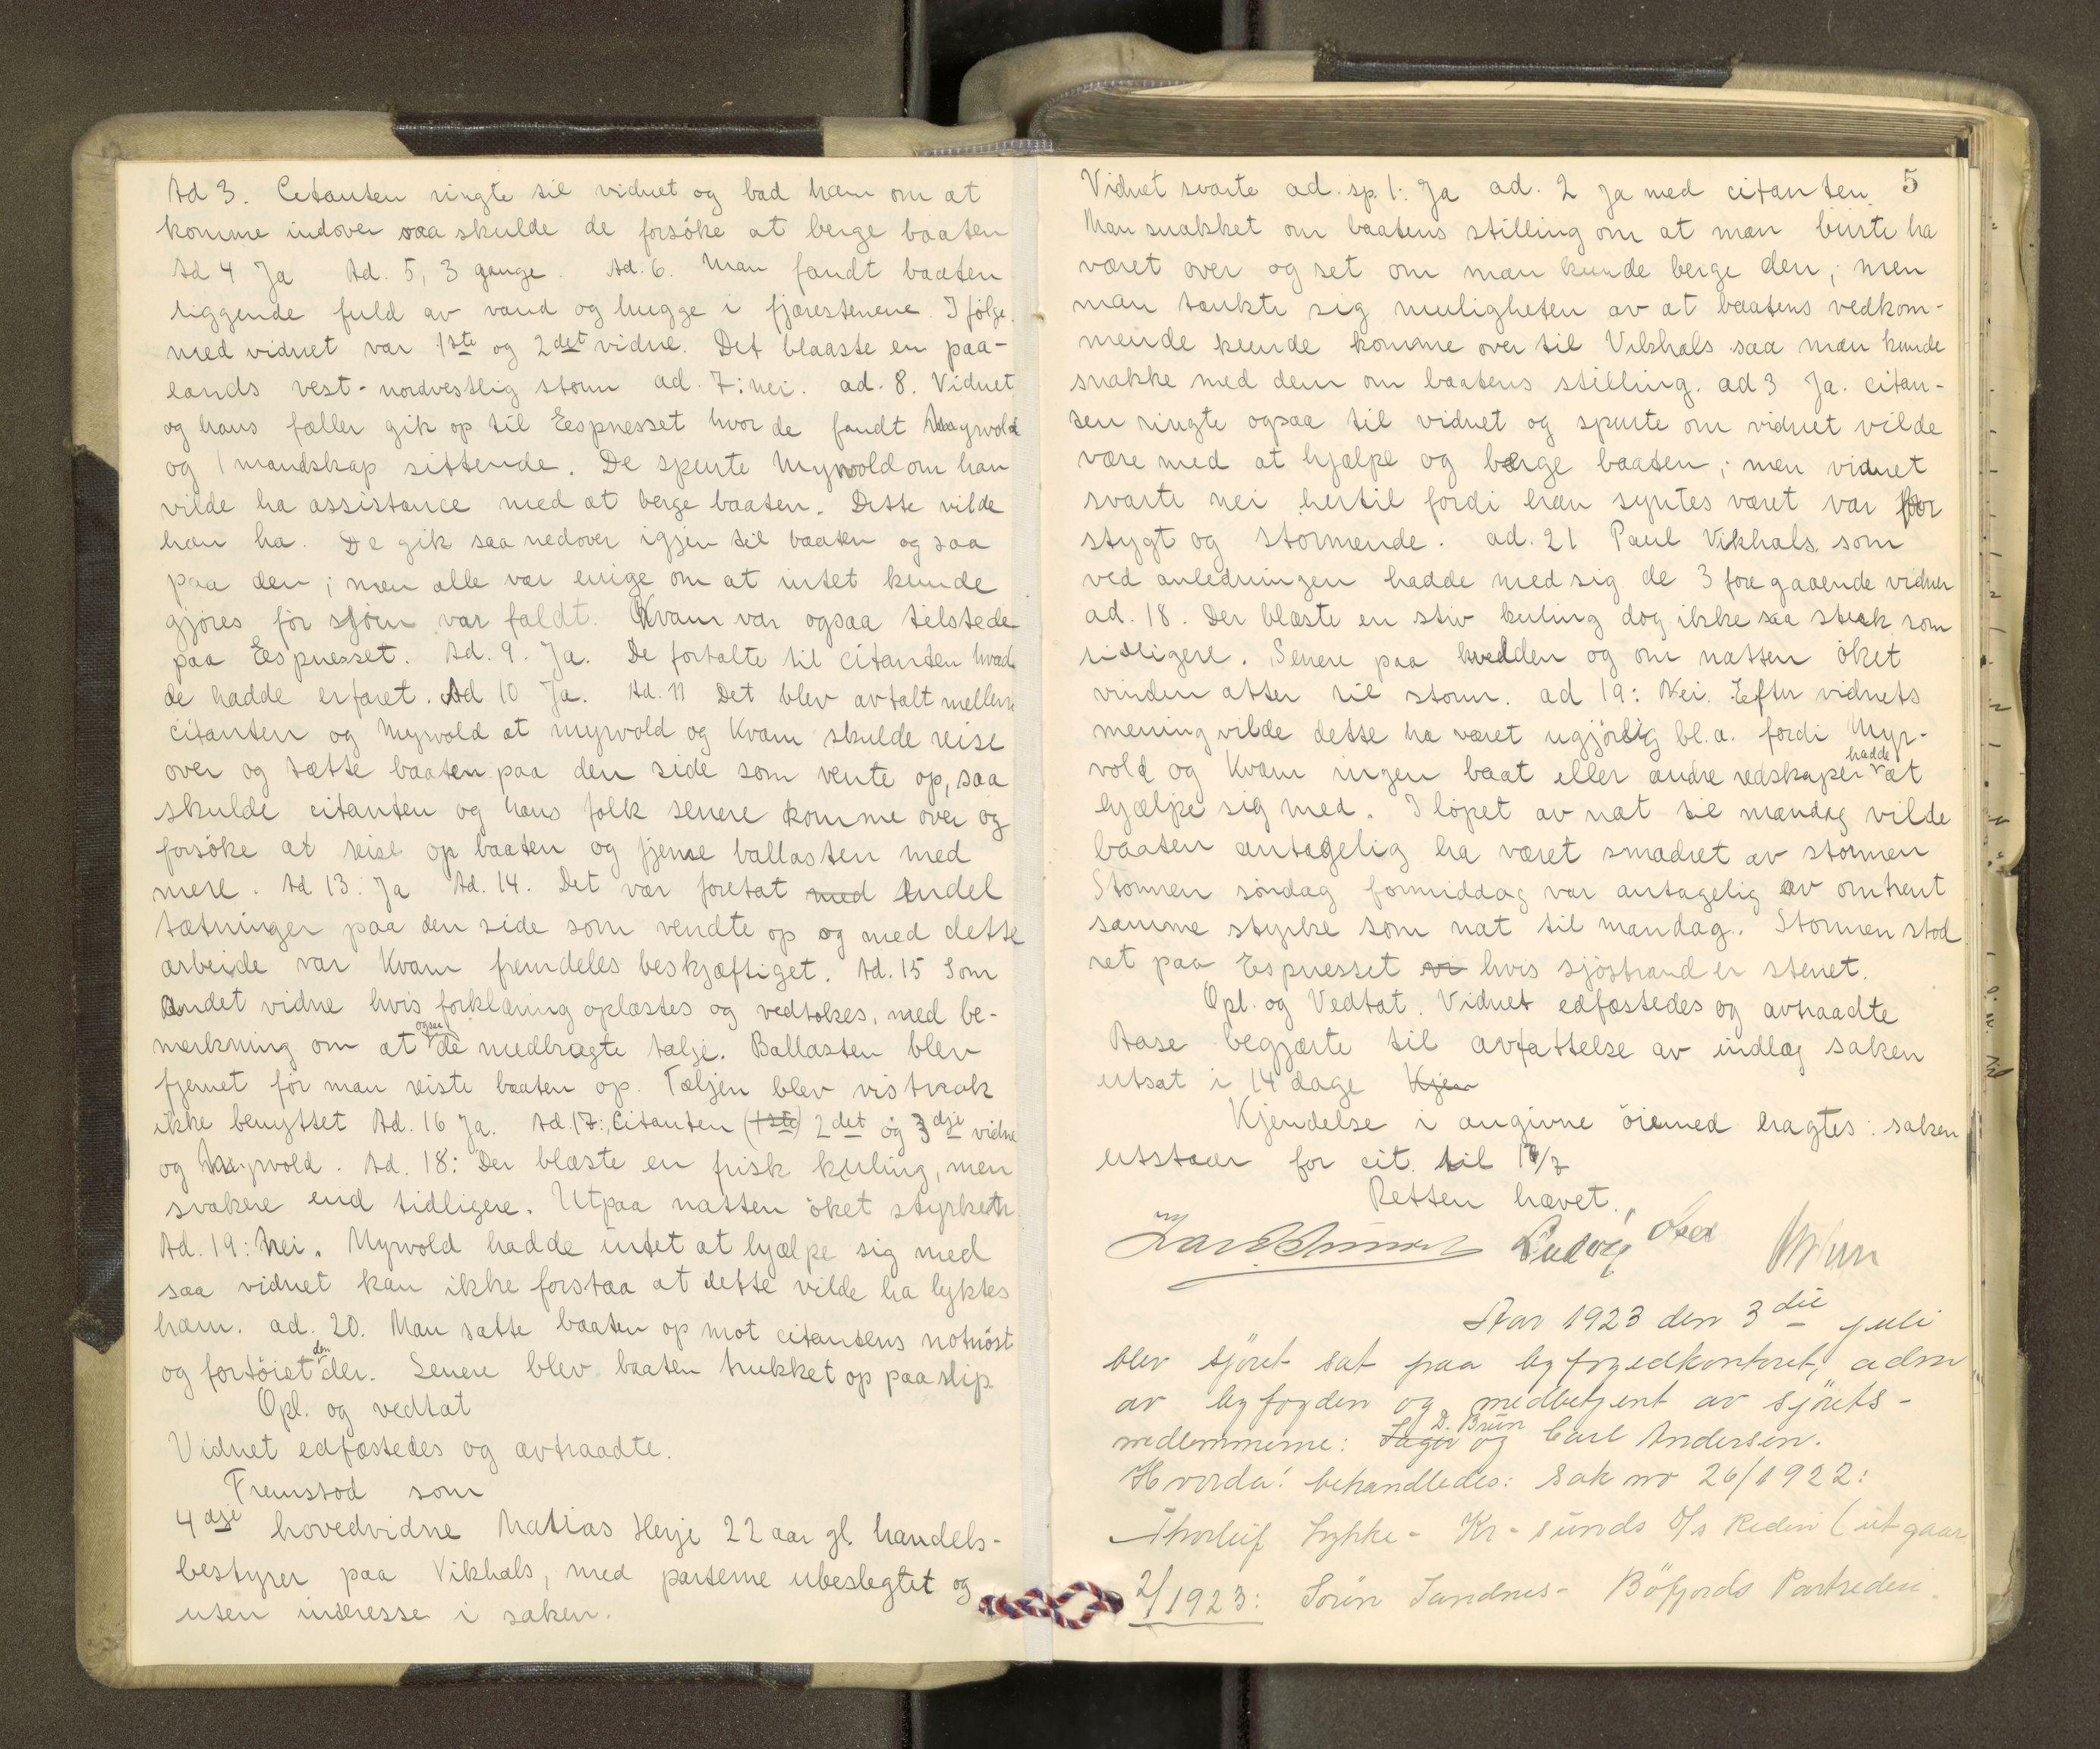 Ad 3. Citanten ringte til vidnet og bad ham om at
komme indover saa skulde de forsöke at berge baaten
Ad 4 Ja Ad. 5, 3 gange. Ad. 6. Man fandt baaten
liggende fuld av vand og hugge i fjærestenene. I følge
med vidnet var 1ste og 2det vidne. Det blaaste en paa-
lands vest-nordvestlig storm ad. 7: nei. ad. 8. Vidnet
og hans fæller gik op til Eespnesset hvor de fandt Myrvold
og 1 mandskap sittende. De spurte Myrvold om han
vilde ha assistance med at berge baaten. Dette vilde
han ha. De gik saa nedover igjen til baaten og saa
paa den; men alle var enige om at intet kunde
gjöres för sjöen var faldt. Kvam var ogsaa tilstede
paa Eespnesset. Ad. 9. Ja. De fortalte til citanten hvad
de hadde erfaret. Ad 10 Ja. Ad. 11 Det blev avtalt mellem
citanten og Myrvold at myrvold og Kvam skulde reise
over og tætte baaten paa den side som vente op, saa
skulde citanten og hans folk senere komme over og
forsöke at reise op baaten og fjerne ballasten med
mere. Ad 13: Ja Ad. 14. Det var foretat med endel
tætninger paa den side som vendte op og med dette
arbeide var Kvam fremdeles beskjæftiget. Ad. 15 Som
andet vidne hvis forklaring oplæstes og vedtokes, med be-
merkning om at ogsaa de medbragte talje. Ballasten blev
fjernet för man reiste baaten op. Taljen blev vistnok
ikke benyttet Ad. 16 Ja. Ad. 17: Citanten (1ste) 2det og 3dje vidne
og Myrvold. Ad. 18: Der blæste en frisk kuling, men
svakere end tidligere. Utpaa natten öket styrken.
Ad. 19: Nei. Myrvold hadde intet at hjælpe sig med
saa vidnet kan ikke forstaa at dette vilde ha lyktes
ham. ad. 20. Man satte baaten op mot citantens notnöst
og fortöiet den der. Senere blev baaten trukket op paa slip
Opl. og vedtat
Vidnet edfæstedes og avtraadte.
Fremstod som
4dje hovedvidne Matias Henje 22 aar gl. handels-
bestyrer paa Vikhals, med parterne ubeslegtet og
uten interesse i saken.
5
Vidnet svarte ad. sp. 1: Ja ad. 2 Ja med citanten.
Man snakket om baatens stilling om at man burte ha
været over og set om man kunde berge den; men
man tænkte sig muligheten av at baatens vedkom-
mende kunde komme over til Vikhals saa man kunde
snakke med dem om baatens stilling. ad 3 Ja. citan-
ten ringte ogsaa til vidnet og spurte om vidnet vilde
være med at hjælpe og berge baaten; men vidnet
svarte nei hertil fordi han syntes været var for
stygt og stormende. ad. 21 Paul Vikhals som
ved anledningen hadde med sig de 3 foregaaende vidner
ad. 18. Der blæste en stiv kuling dog ikke saa sterk som
tidligere. Senere paa kvelden og om natten öket
vinden atter til storm. ad 19: Nei. Efter vidnets
mening vilde dette ha været ugjörlig bl.a. fordi Myr-
vold og Kvam ingen baat eller andre redskaper hadde at
hjælpe sig med. I löpet av nat til mandag vilde
baaten antagelig ha været smadret av stormen
Stormen söndag formiddag var antagelig av omtrent
samme styrke som nat til mandag. Stormen stod
ret paa Espnesset vi hvis sjöstrand er stenet.
Opl. og Vedtat. Vidnet edfæstedes og avtraadte
Aase begjærte til avfattelse av indlæg saken
utsat i 14 dage Kjen
Kjendelse i angivne öiemed avsagtes: saken
utstaar for cit. til 17/7
Retten hævet.
Ludvig
Aar 1923 den 3die juli
blev sjöret sat paa byfogedkontoret, adm
av byfogden og medbetjent av sjörets-
medlemmerne: D. Brün og Carl Andersen.
Hvorda! behandledes: Sak nr 26/1922:
Thorleif Lykke - Kr-sunds D/s Rederi (utgaar
2/1923: Sörin Sandnes - Böfjords Partrederi.